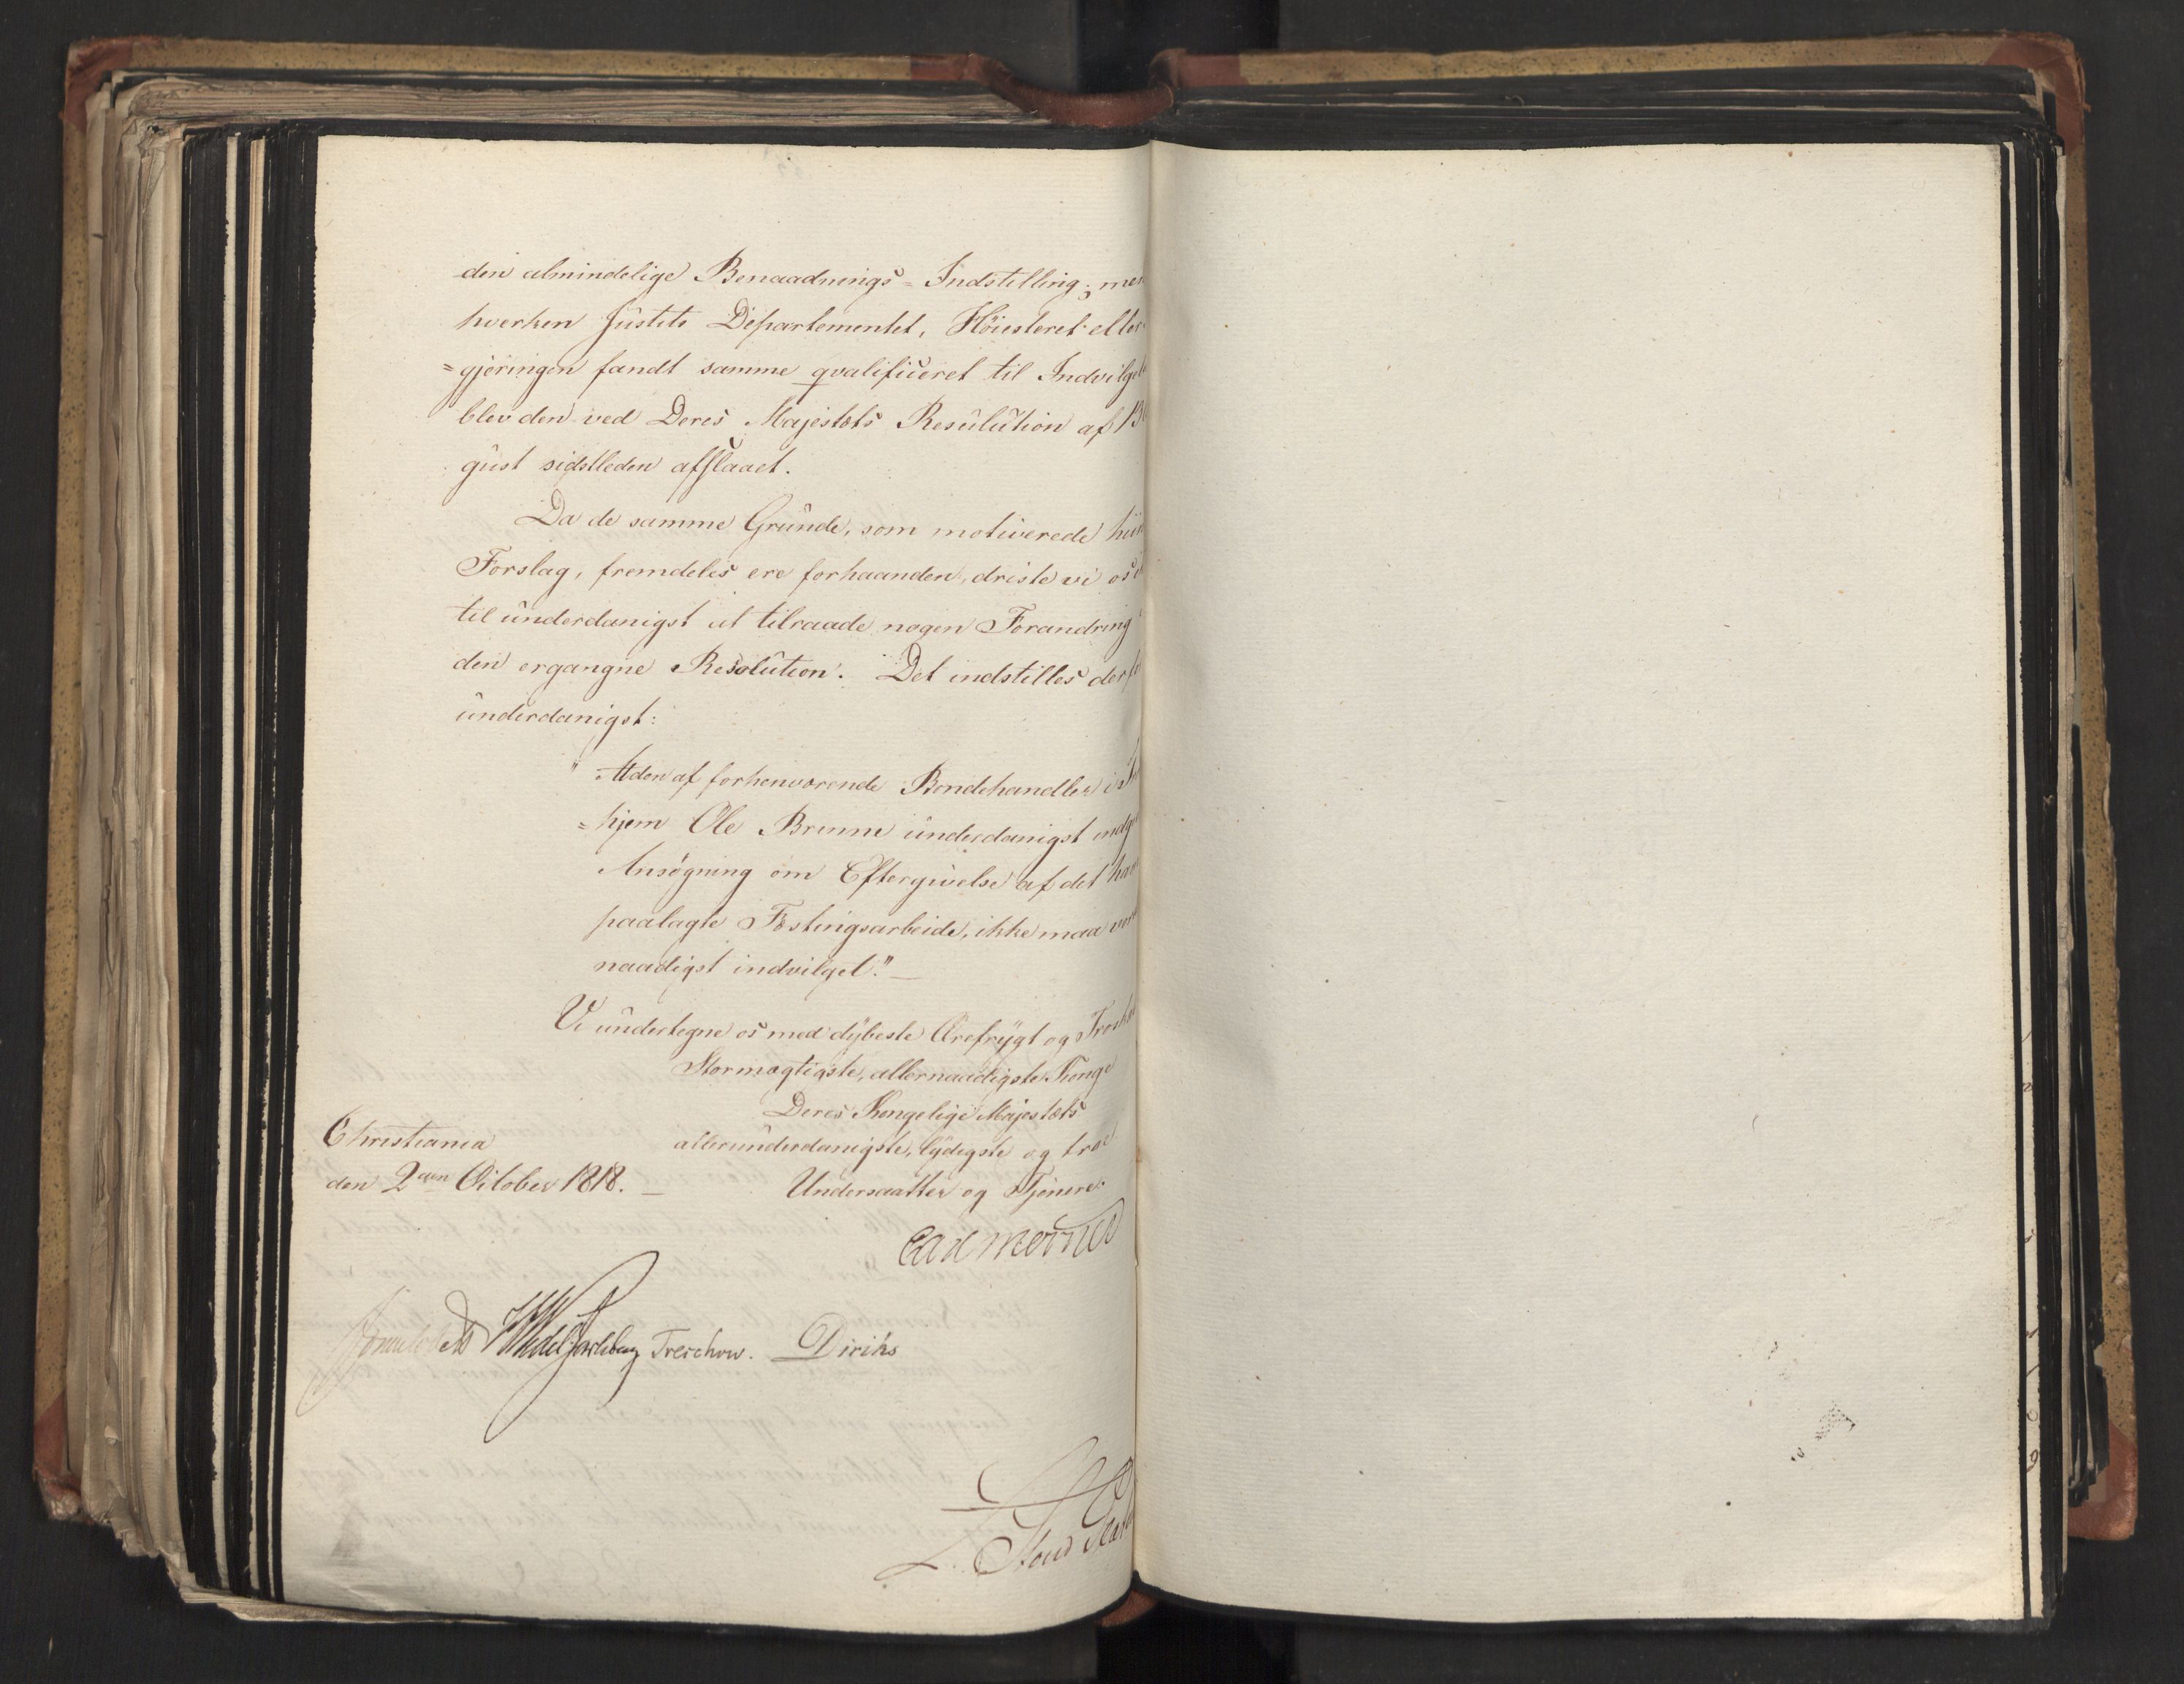 den almindelige Benaadnings-Indstilling; men
hverken Justits Departementet, Höiesteret eller
=gjeringen fandt samme qvalificeret til Indvilgel
blev den ved Deres Majestæts Resulution af 13
gust sidstleden afslaaet.
Da de samme Grunde, som motiverede hiin
Forslag, fremdeles ere forhaanden, driste vi os
til underdanigst at tilraade nogen Forandring
den ergangne Resolution. Det indstilles derfo
underdanigst:
"At den af forhenværende Bondehandler i
=hjem Ole Brunne underdanigst indg
Ansögning om Eftergivelse af det ham
paalagte Fæstingsarbeide, ikke maa vor
naadigst indvilget."
Vi undertegne os med dybeste Ærefrygt og Trosk
Stormægtigste, allernaadigste Konge
Deres Kongelige Majestæts
allerunderdanigste, lydigste og tro
Christiania
den 2den October 1818.
Undersaatter og Tjenere.
Carl Mörner
Sommerhielm WedelJarlsberg Treschow. Diriks